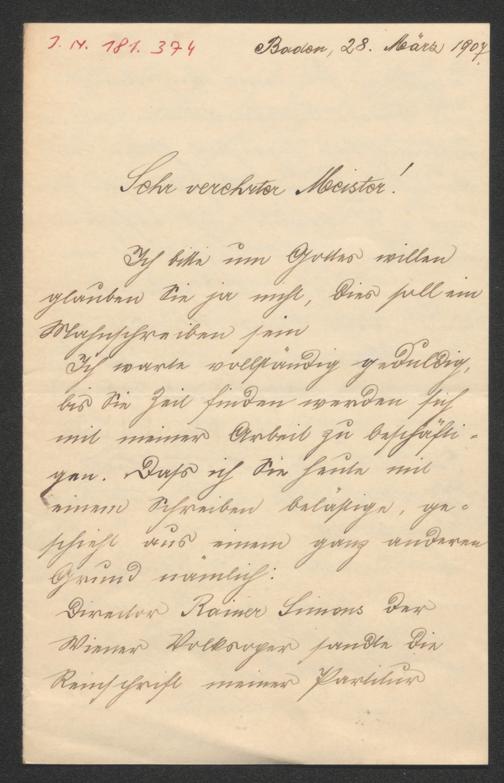 J. N. 181. 374
Baden, 28. März 1907.
Sehr verehrter Meister!
Ich bitte um Gottes willen
glauben Sie ja nicht, dies soll ein
Mahnschreiben sein
Ich warte vollständig geduldig,
bis Sie Zeit finden werden sich
mit meiner Arbeit zu beschäfti-
gen. Daß ich Sie heute mit
einem Schreiben belästige, ge-
schieht aus einem ganz anderen
Grund nämlich:
Director Rainer Simons der
Wiener Volksoper sandte die
Reinschrift meiner Partitur